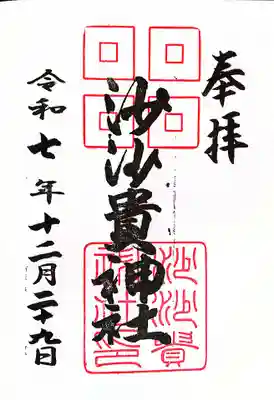 奉拝
沙沙貴神社
沙沙貴神社印
令和七年十二月二十九日